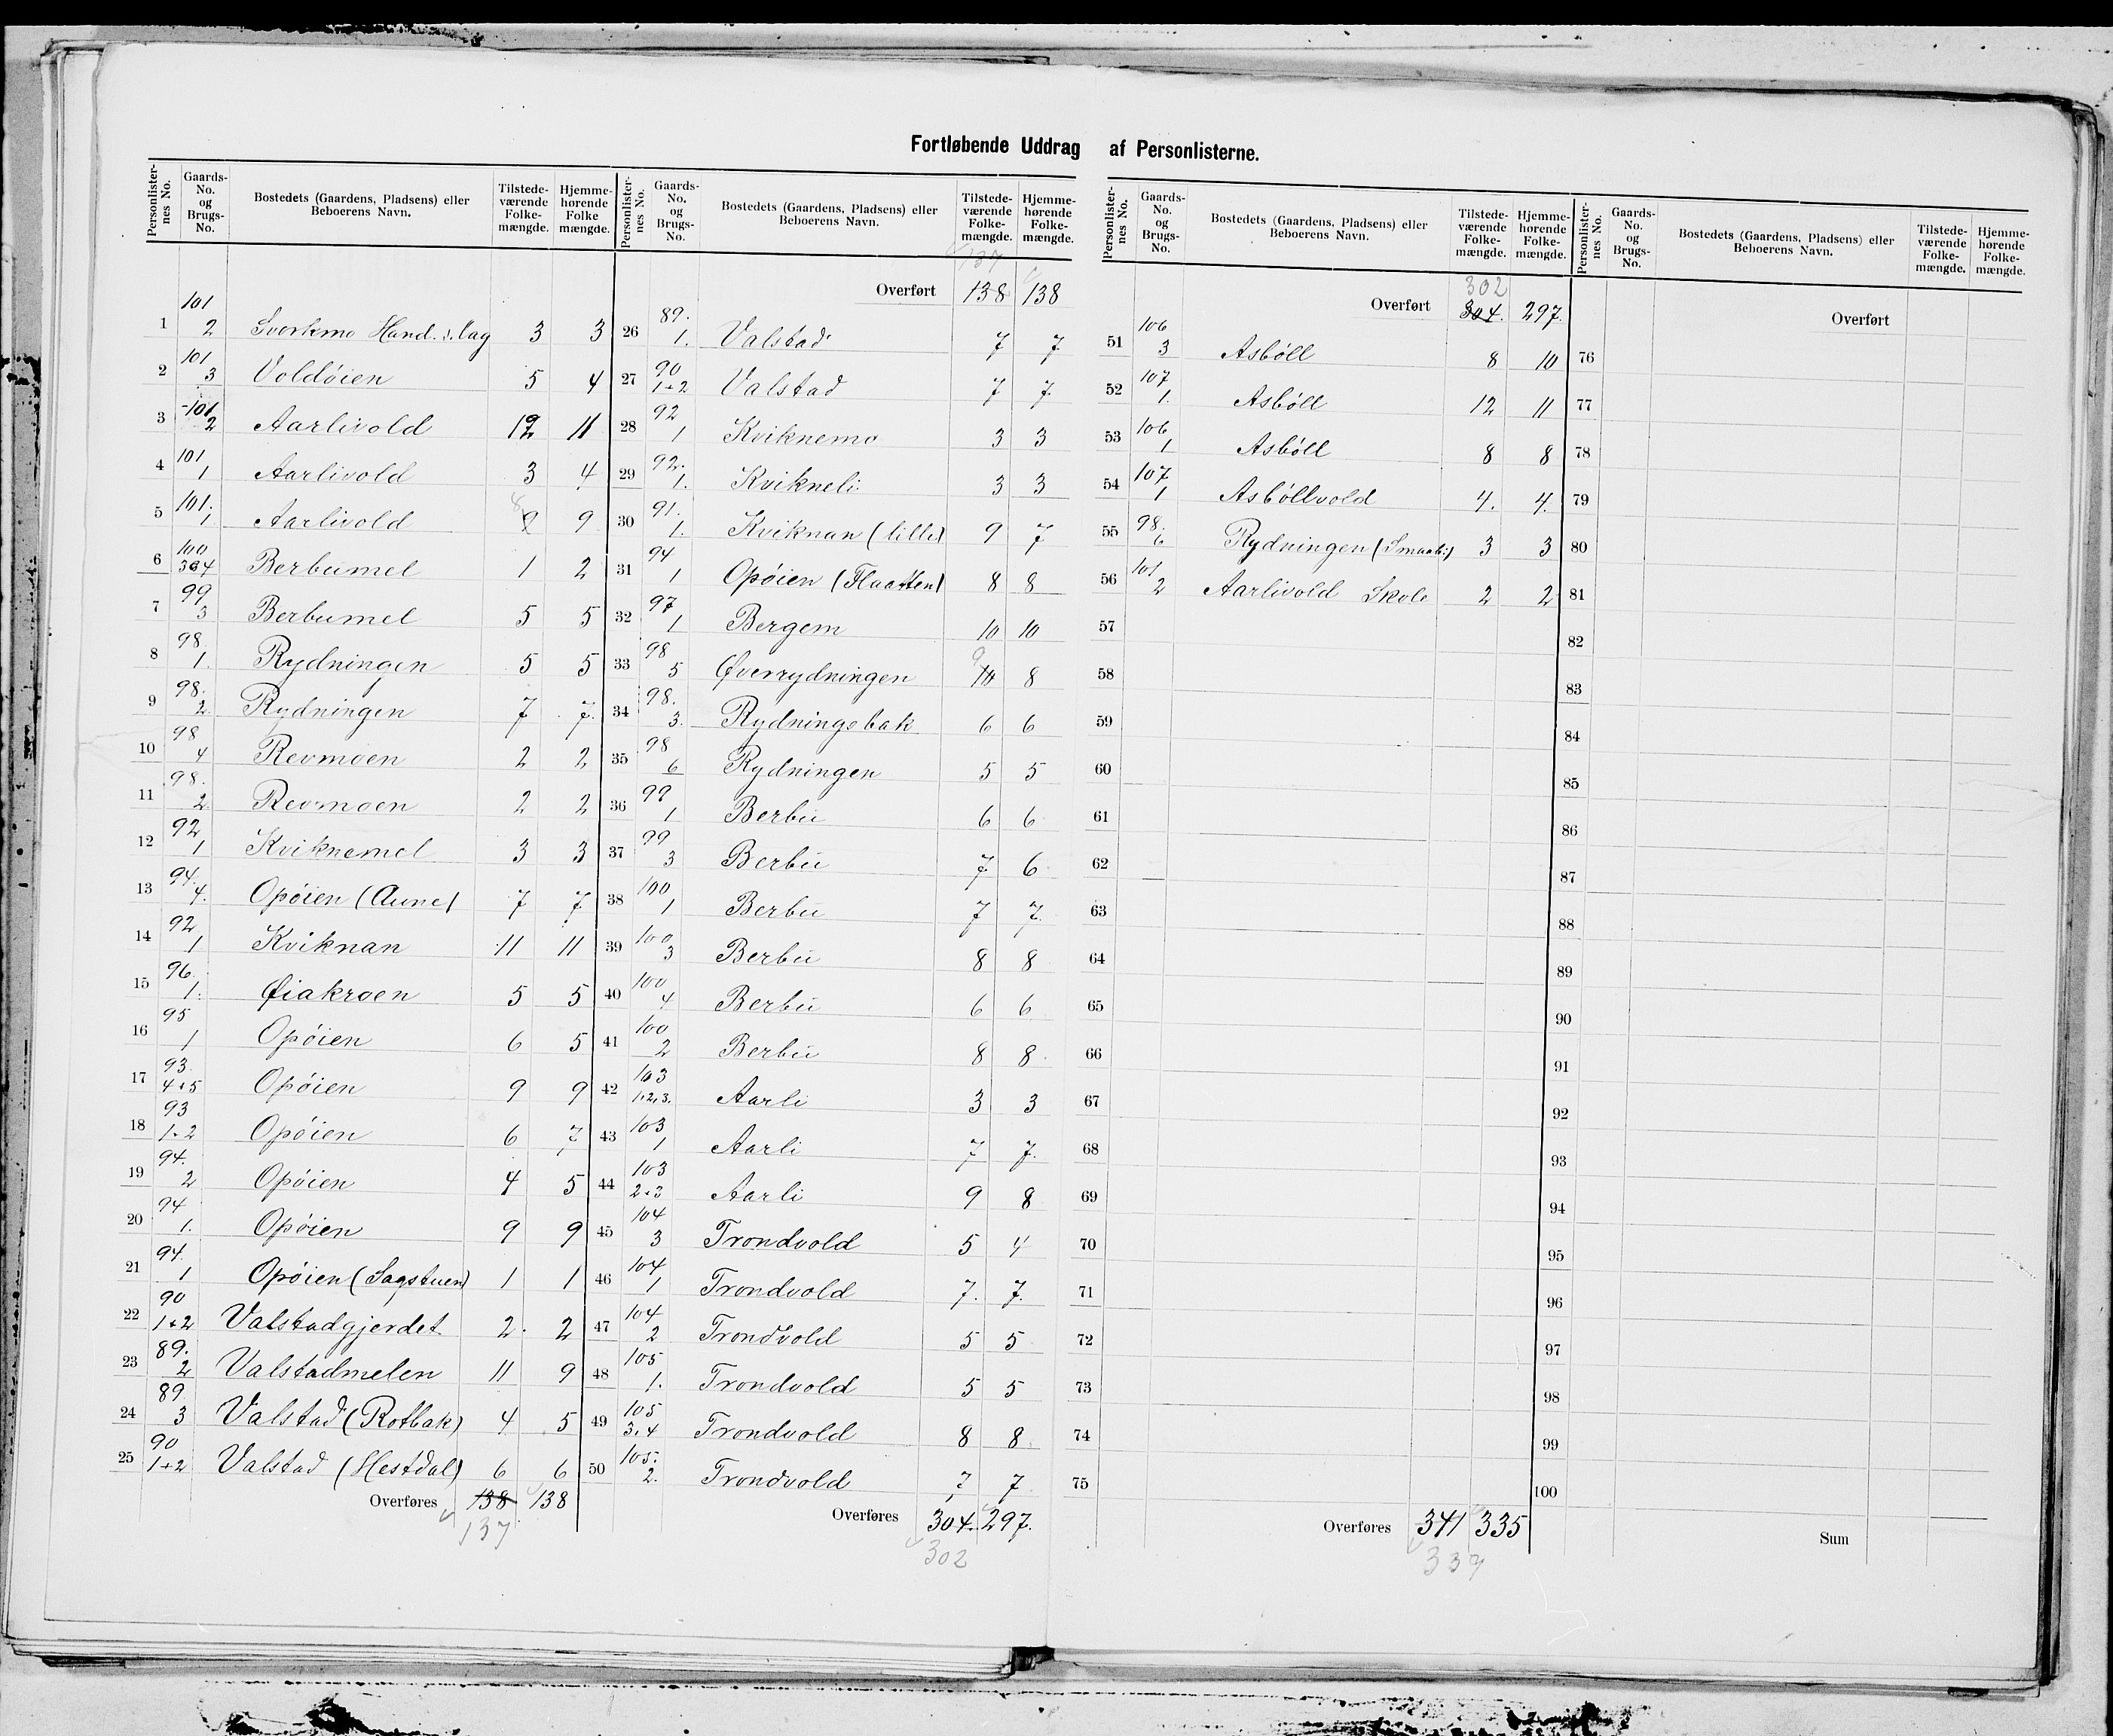 Fortløbende Uddrag af Personlisterne.
Personlister-nes No. | Gaards-No. og Brugs-No. | Bostedets (Gaardens, Pladsens) eller Beboerens Navn. | Tilstede-værende Folke-mængde. | Hjemme-hørende Folke mængde.
1 | 101 2 | Svorkmo Hand. s. lag | 3 | 3
2 | 101 3 | Voldøien | 5 | 4
3 | 101 2 | Aarlivold | 12 | 11
4 | 101 1 | Aarlivold | 3 | 4
5 | 101. 1 | Aarlivold | 8 9 | 9
6 | 100 3&4 | Berbumel | 1 | 2
7 | 99 3 | Berbumel | 5 | 5
8 | 98 1. | Rydningen | 5 | 5
9 | 98. 2. | Rydningen | 7 | 7.
10 | 98 4 | Revmoen | 2 | 2
11 | 98. 2 | Revmoen | 2 | 2
12 | 92 1 | Kviknemel | 3 | 3
13 | 94. 4. | Opøien (Aune) | 7 | 7
14 | 92 1 | Kviknan | 11 | 11
15 | 96. 1. | Øiakroen | 5 | 5
16 | 95 1 | Opøien | 6 | 5
17 | 93. 4+5 | Opøien | 9 | 9
18 | 93 1+2 | Opøien | 6 | 7
19 | 94. 2 | Opøien | 4 | 5
20 | 94 1. | Opøien | 9 | 9
21 | 94. 1 | Opøien (Sagstuen) | 1 | 1
22 | 90 1+2 | Valstadgjerdet. | 2. | 2
23 | 89. 2 | Valstadmelen | 11 | 9
24 | 89 3 | Valstad (Rotbak) | 4 | 5
25 | 90 1+2 | Valstad (Hestdal) | 6 | 6
Overføres | 138 | 138
137
Personlister-nes No. | Gaards-No. og Brugs-No. | Bostedets (Gaardens, Pladsens) eller Beboerens Navn. | Tilstede-værende Folke-mængde. | Hjemme-hørende Folke-mængde.
137
Overført | 138 | 138
26 | 89. 1. | Valstad | 7 | 7
27 | 90 1+2 | Valstad | 7 | 7
28 | 92 1 | Kviknemo | 3 | 3
29 | 92. 1. | Kvikneli | 3 | 3
30 | 91. 1. | Kviknan (lille) | 9 | 7
31 | 94 1 | Opøien (Flaatten) | 8 | 8
32 | 97 1 | Bergem | 10 | 10
33 | 98 5 | Øverrydningen | 9 10 | 8
34 | 98. 3. | Rydningsbak | 6 | 6
35 | 98 6 | Rydningen | 5 | 5
36 | 99 1 | Berbu | 6 | 6
37 | 99 3 | Berbu | 7 | 6
38 | 100 1 | Berbu | 7 | 7
39 | 100 3 | Berbu | 8 | 8
40 | 100 4 | Berbu | 6 | 6
41 | 100 2 | Berbu | 8 | 8
42 | 103 1.2.3. | Aarli | 3 | 3
43 | 103 1 | Aarli | 7 | 7.
44 | 103 2+3 | Aarli | 9 | 8
45 | 104 3 | Trondvold | 5 | 4
46 | 104 1 | Trondvold | 7. | 7.
47 | 104 2 | Trondvold | 5 | 5
48 | 105 1. | Trondvold | 5 | 5
49 | 105 3.4 | Trondvold | 8 | 8
50 | 105. 2. | Trondvold | 7 | 7
Overføres | 304. | 297.
302
Personlister-nes No. | Gaards-No. og Brugs-No. | Bostedets (Gaardens, Pladsens) eller Beboerens Navn. | Tilstede-værende Folke-mængde. | Hjemme-hørende Folke-mængde.
302
Overført | 304. | 297.
51 | 106 3 | Asbøll | 8 | 10
52 | 107 1. | Asbøll | 12 | 11
53 | 106 1 | Asbøll | 8 | 8
54 | 107 1 | Asbøllvold | 4. | 4.
55 | 98. 6 | Rydningen (Smaab:) | 3 | 3
56 | 101 2 | Aarlivold Skole | 2 | 2
57
58
59
60
61
62
63
64
65
66
67
68
69
70
71
72
73
74
75
Overføres | 341 | 335
339
Personlister-nes No. | Gaards-No. og Brugs-No. | Bostedets (Gaardens, Pladsens) eller Beboerens Navn. | Tilstede-værende Folke-mængde. | Hjemme-hørende Folke-mængde.
Overført
76
77
78
79
80
81
82
83
84
85
86
87
88
89
90
91
92
93
94
95
96
97
98
99
100
Sum